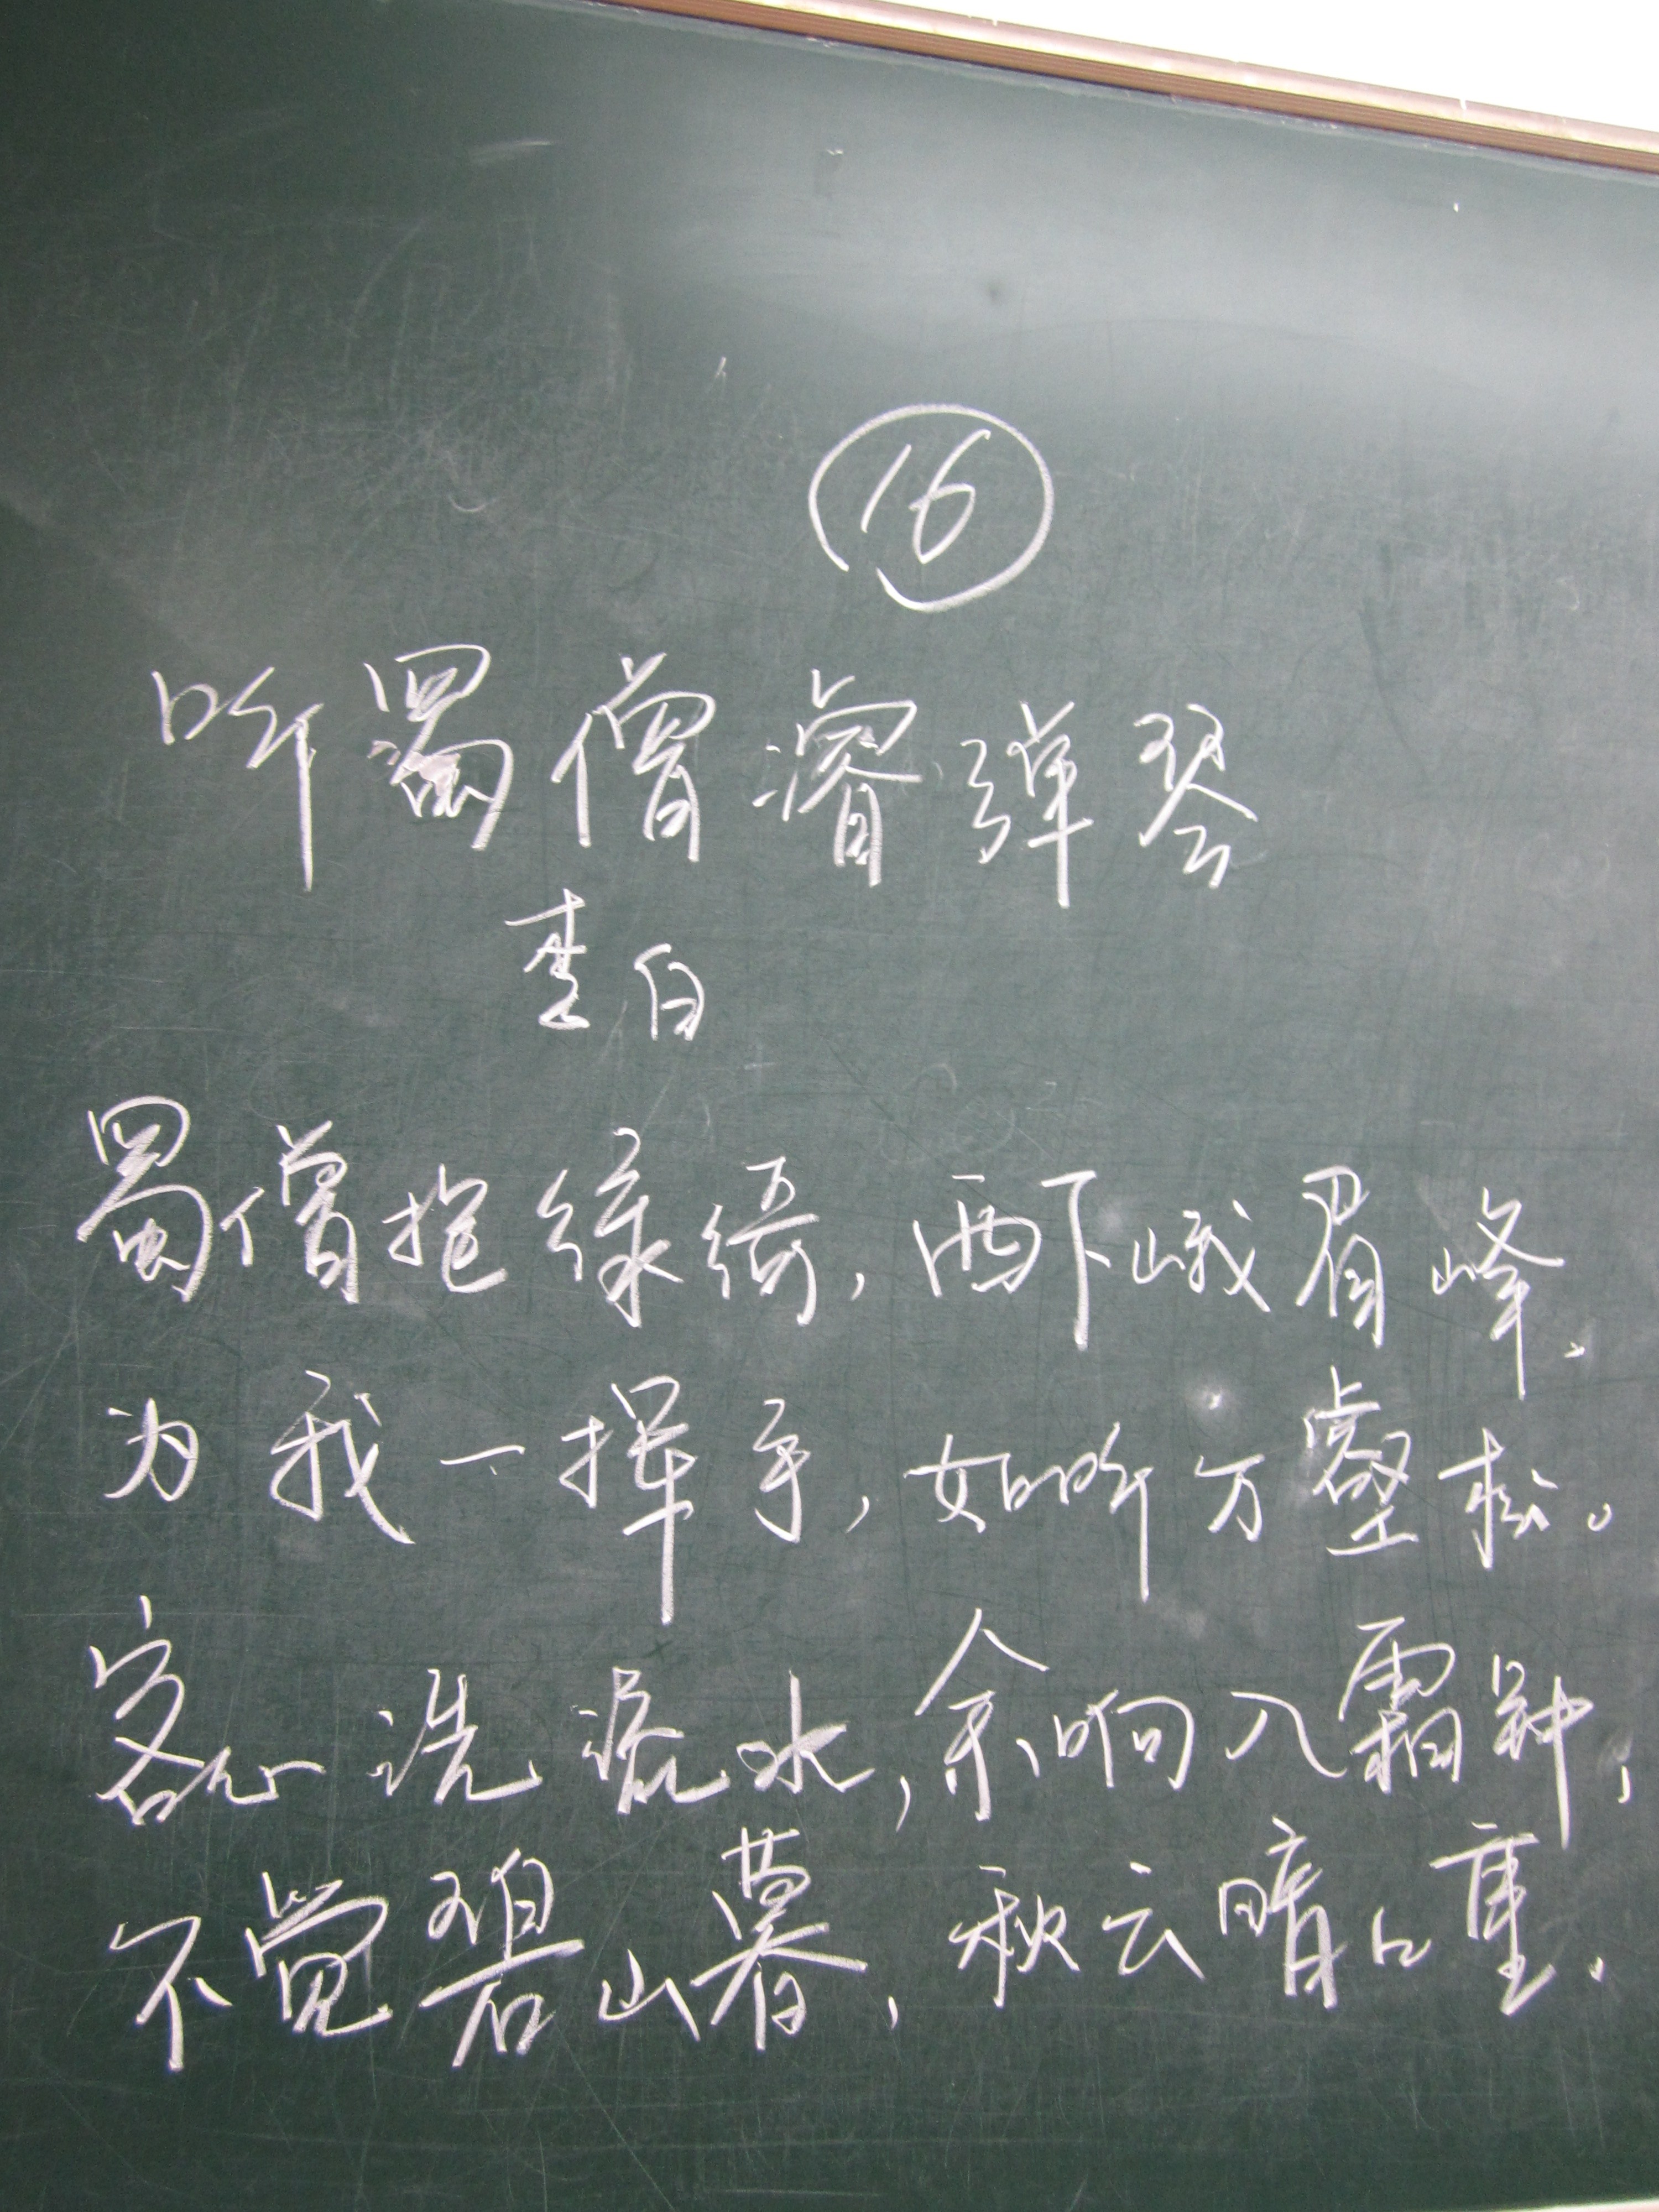 ⑯
听蜀僧濬弹琴
李白
蜀僧抱绿绮，西下峨眉峰。
为我一挥手，如听万壑松。
客心洗流水，余响入霜钟，
不觉碧山暮，秋云暗几重。